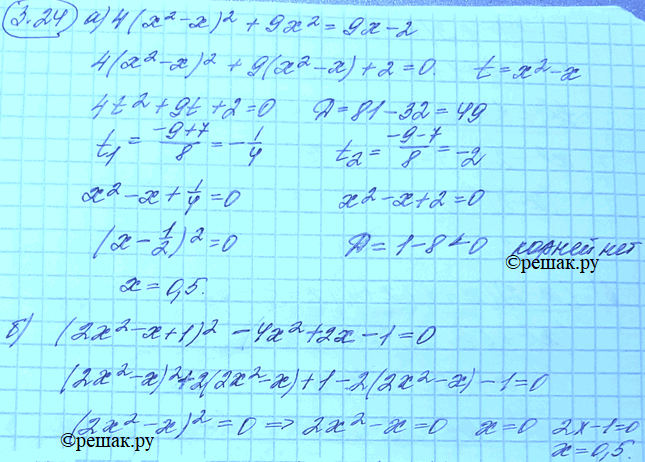 3.24 а) 4(x²-x)² + 9x² = 9x-2
4(x²-x)² + 9(x²-x) + 2 = 0. t = x²-x
4t² + 9t + 2 = 0 Д = 81-32 = 49
t₁ = (-9+7)/8 = -1/4 t₂ = (-9-7)/8 = -2
x²-x+1/4 = 0 x²-x+2 = 0
(x-1/2)² = 0 Д = 1-8<0 корней нет
©решак.ру
x = 0,5.
б) (2x²-x+1)² - 4x²+2x-1 = 0
(2x²-x)²+2(2x²-x)+1-2(2x²-x)-1=0
(2x²-x)² = 0 => 2x²-x = 0 x = 0 2x-1=0
©решак.ру x = 0,5.